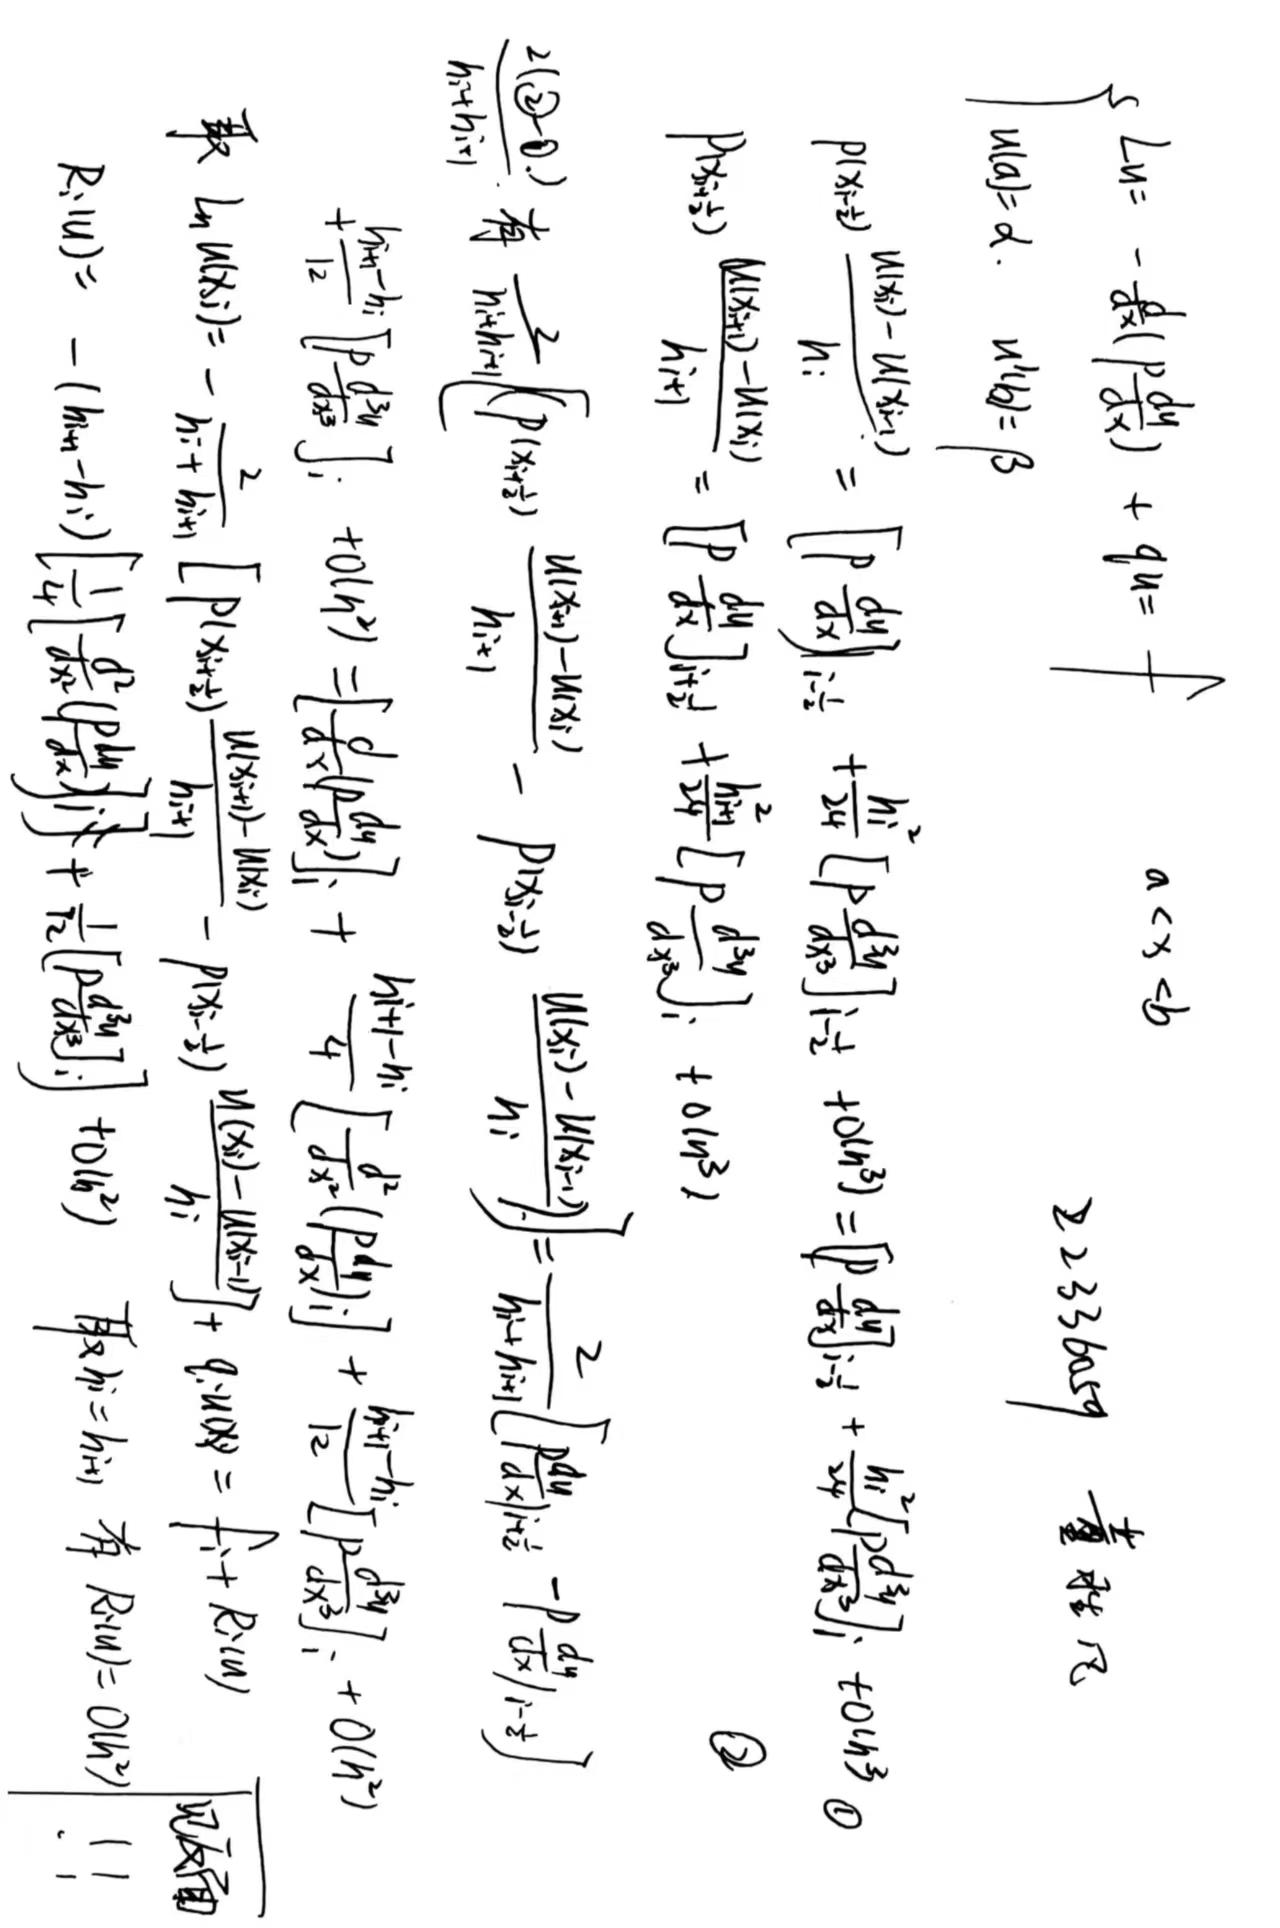 { Lu = -d/dx(p du/dx) + qu = f    a < x < b
22336059 董胜凡
u(a) = α.   u'(b) = β
p(x_{i-1/2}) (u(x_i) - u(x_{i-1}))/h_i = [p du/dx]_{i-1/2} + h_i²/24 [p d³u/dx³]_{i-1/2} + O(h³) = [p du/dx]_{i-1/2} + h_i²/24 [p d³u/dx³]_i + O(h³ ①
p(x_{i+1/2}) (u(x_{i+1}) - u(x_i))/h_{i+1} = [p du/dx]_{i+1/2} + h_{i+1}²/24 [p d³u/dx³]_i + O(h³) ②
2(②-①)/(h_i+h_{i+1}) 有 2/(h_i+h_{i+1}) [(p(x_{i+1/2}) (u(x_{i+1}) - u(x_i))/h_{i+1} - p(x_{i-1/2}) (u(x_i) - u(x_{i-1}))/h_i)] = 2/(h_i+h_{i+1}) [p du/dx)_{i+1/2} - p du/dx)_{i-1/2}]
+ (h_{i+1}-h_i)/12 [p d³u/dx³]_i + O(h²) = [d/dx(p du/dx)]_i + (h_{i+1}-h_i)/4 [d²/dx²(p du/dx)_i] + (h_{i+1}-h_i)/12 [p d³u/dx³]_i + O(h²)
取 L_h u(x_i) = - 2/(h_i+h_{i+1}) [p(x_{i+1/2}) (u(x_{i+1}) - u(x_i))/h_{i+1} - p(x_{i-1/2}) (u(x_i) - u(x_{i-1}))/h_i] + q_i u(x_i) = f_i + R_i(u)
R_i(u) = -(h_{i+1}-h_i) [1/4 [d²/dx²(p du/dx)]_i + 1/12 [p d³u/dx³]_i] + O(h²)   取 h_i = h_{i+1} 有 R_i(u) = O(h²)
见反面
!!